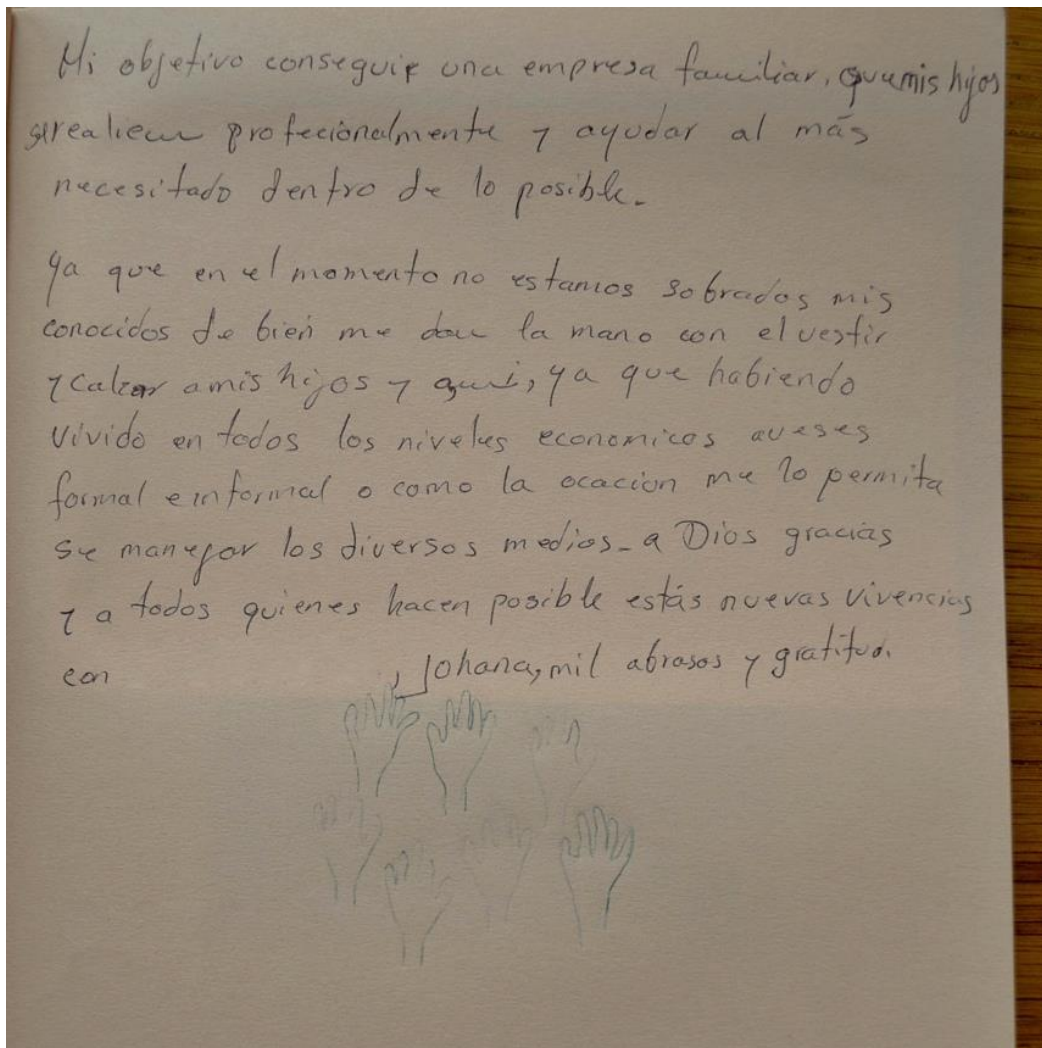 Mi objetivo conseguir una empresa familiar, que mis hijos
se realicen profecionalmente y ayudar al más
necesitado dentro de lo posible.
Ya que en el momento no estamos sobrados mis
conocidos de bien me dan la mano con el vestir
y calzar a mis hijos y a mi, ya que habiendo
vivido en todos los niveles economicos aveses
formal e informal o como la ocacion me lo permita
se manejar los diversos medios - a Dios gracias
y a todos quienes hacen posible estás nuevas vivencias
con , Johana, mil abrasos y gratitud.